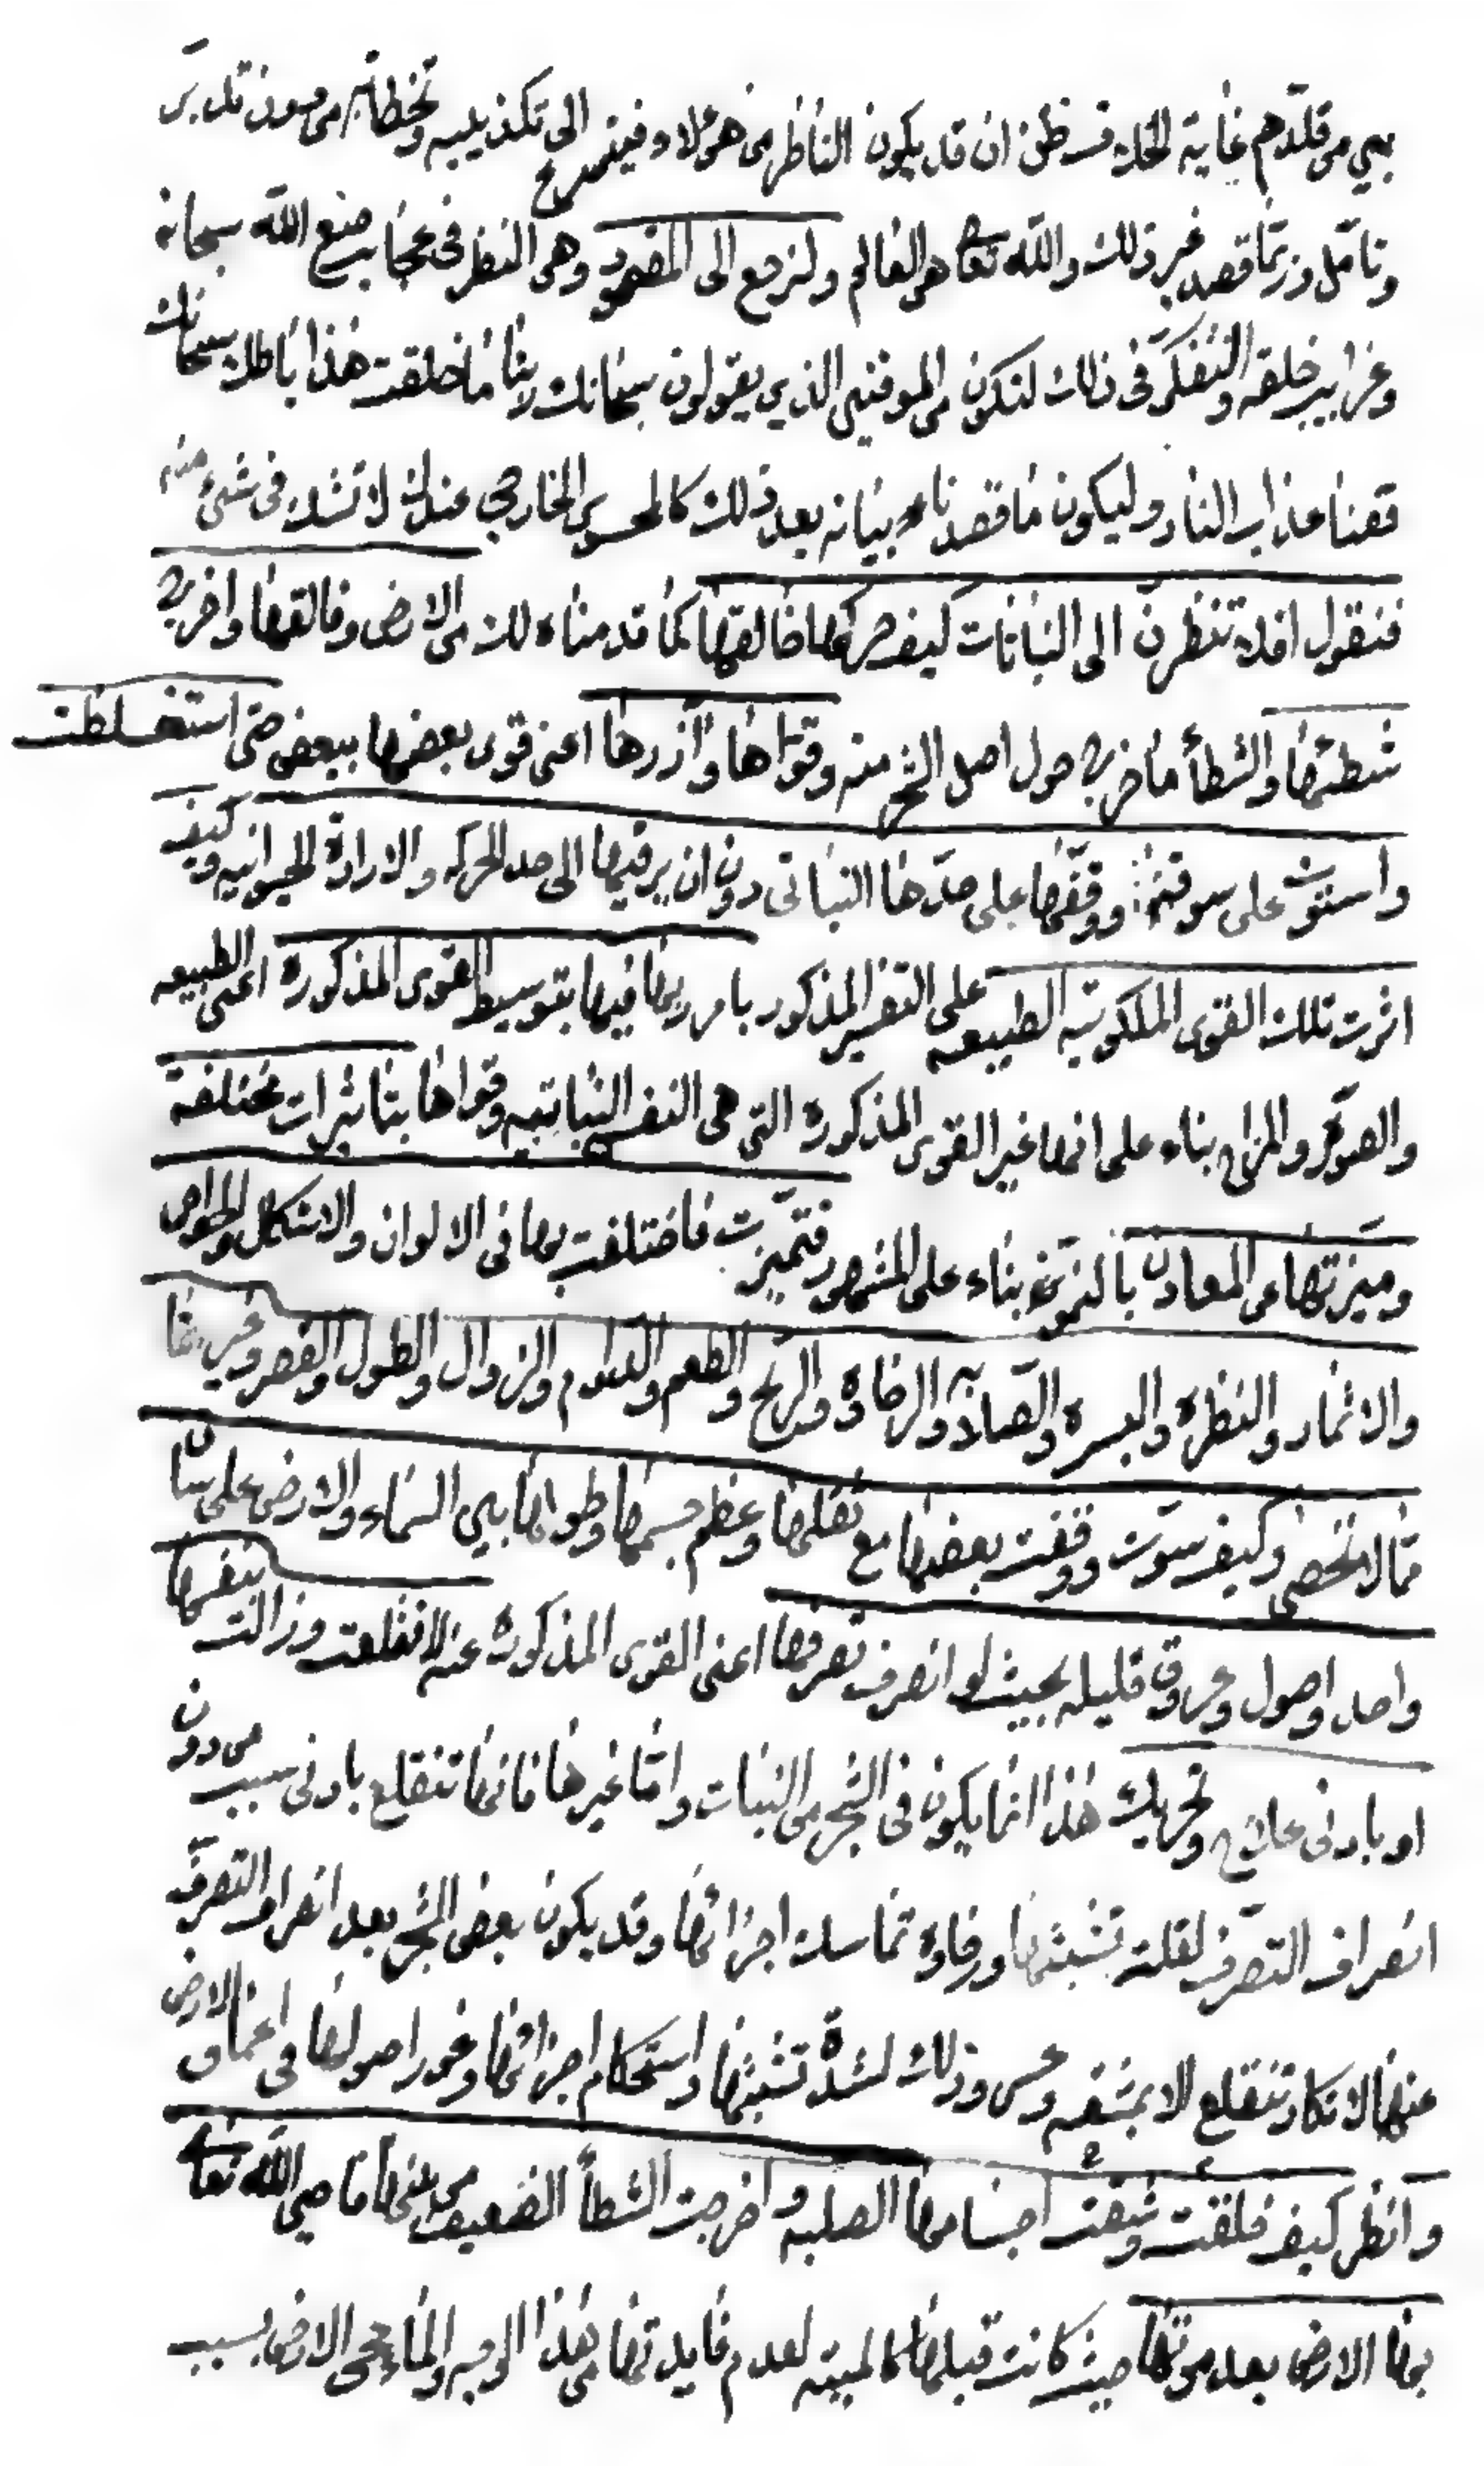 بين من قلّدهم غاية الحك قد ظن ان قد يكون الناظر من هؤلاء فيتسرع الى تكذيبه وتخطائه من دون تدبر
وتامّل وربّما قصد غير ذلك والله تعا هو العالم ولنرجع الى المقصود وهى النظر فى عجايب صنع الله سبحانه
وغرايب خلقه والتفكّر فى ذلك لتكون من الموقنين الذين يقولون سبحانك ربنا ما خلقت هذا باطلا سبحانك
فقنا عذاب النار وليكون ما قصدناه بيانه بعد ذلك كالمحسوس الخارجى عندك لا تشك فى شىء منه
فنقول افلا تنظرن الى النباتات كيف حركها خالقها كما قدمناه لك من الارض وفالقها واخرج
شطئها والشطأ ما خرج حول اصل الشجر منه وقوّاها وآزرها اعنى قوى بعضها ببعض حتى استغلظت
واستوت على سوقها ووقفها على حدّها النباتى دون ان يرقيها الى حد الحركه والارادة الحيوانيه وكيف
اثرت تلك القوى الملكوتيه الطبيعه على التفسير المذكور بامر ربها فيها بتوسيط القوى المذكوره اعنى الطبيعه
والصورة والمزاج بناء على انها غير القوى المذكوره التى هى النفس النباتيه وقواها بتاثيرات مختلفة
وميزتها من المعادن بالنمو بناء على المشهور فتميّزت فاختلفت بها فى الالوان والاشكال والخواص
والاثمار والنظرة واليسرة والصلابه والرخاوة والريح والطعم والدوام والزوال والطول والقصر وغيرها
ممّا لا تحصى وكيف سوّت ووقفت بعضها مع ثقلها وعظم جسمها وطولها بين السماء والارض على ساق
واحد واصول وعروق قليله بحيث لو انصرف تصرفها اعنى القوى المذكوره عنه لانقلعت وزالت بنفسها
او بادنى علاج وتحريك هذا انما يكون فى الشجر من النبات وامّا غيرها فانها تنقلع بادنى سبب من دون
انصراف التصرّف لقلة تشبثها ورخاوة تماسك اجزائها وقد يكون بعض الشجر بعد انصراف التصرّف
عنها لا تكاد تنقلع الا بمشقه وعسر وذلك لشدّة تشبثها واستحكام اجزائها وغور اصولها فى اعماق الارض
وانظر كيف فلقت وشقت اجسامها الصلبه واخرجت الشطأ الضعيف من بينها فاحيى الله تعا
بها الارض بعد موتها حيث كانت قبلها كالميته لعدم فايدتها من هذا الوجه والماء يحيى الارض بسبب